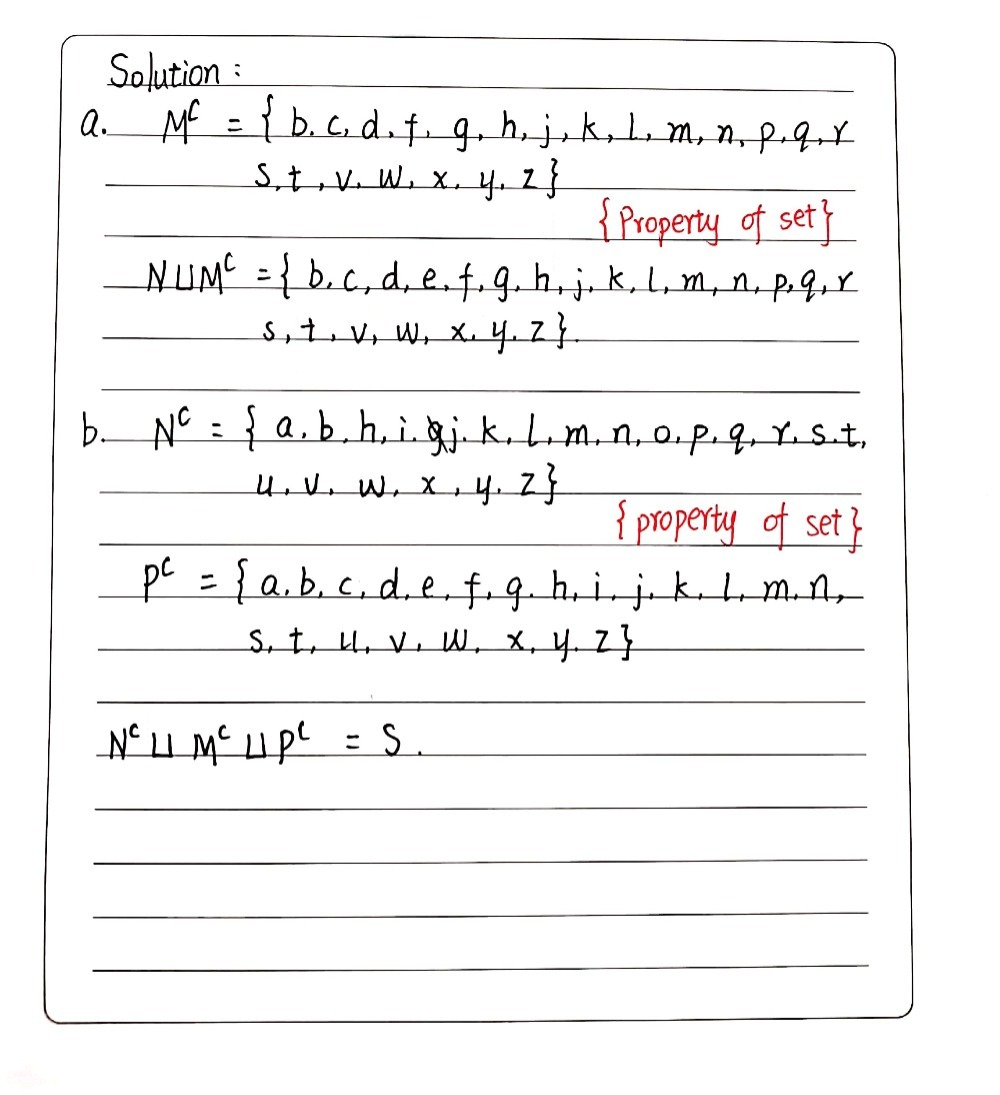 Solution :
a. Mᶜ = { b. c, d, f, g, h, j, k, l, m, n, p, q, r
s, t, v, w, x, y, z }
{Property of set}
N⊔Mᶜ = { b, c, d, e, f, g, h, j, k, l, m, n, p, q, r
s, t, v, w, x, y, z }.
b. Nᶜ = { a, b, h, i, j, k, l, m, n, o, p, q, r, s, t,
u, v, w, x, y, z }
{ property of set }
Pᶜ = { a, b, c, d, e, f, g, h, i, j, k, l, m, n,
s, t, u, v, w, x, y, z }
Nᶜ ⊔ Mᶜ ⊔ Pᶜ = S.